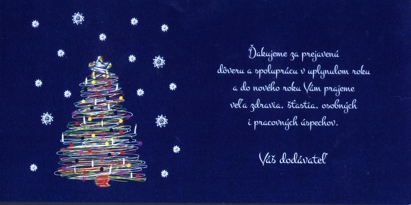 Ďakujeme za prejavenú
dôveru a spoluprácu v uplynulom roku
a do nového roku Vám prajeme
veľa zdravia, šťastia, osobných
i pracovných úspechov.
Váš dodávateľ